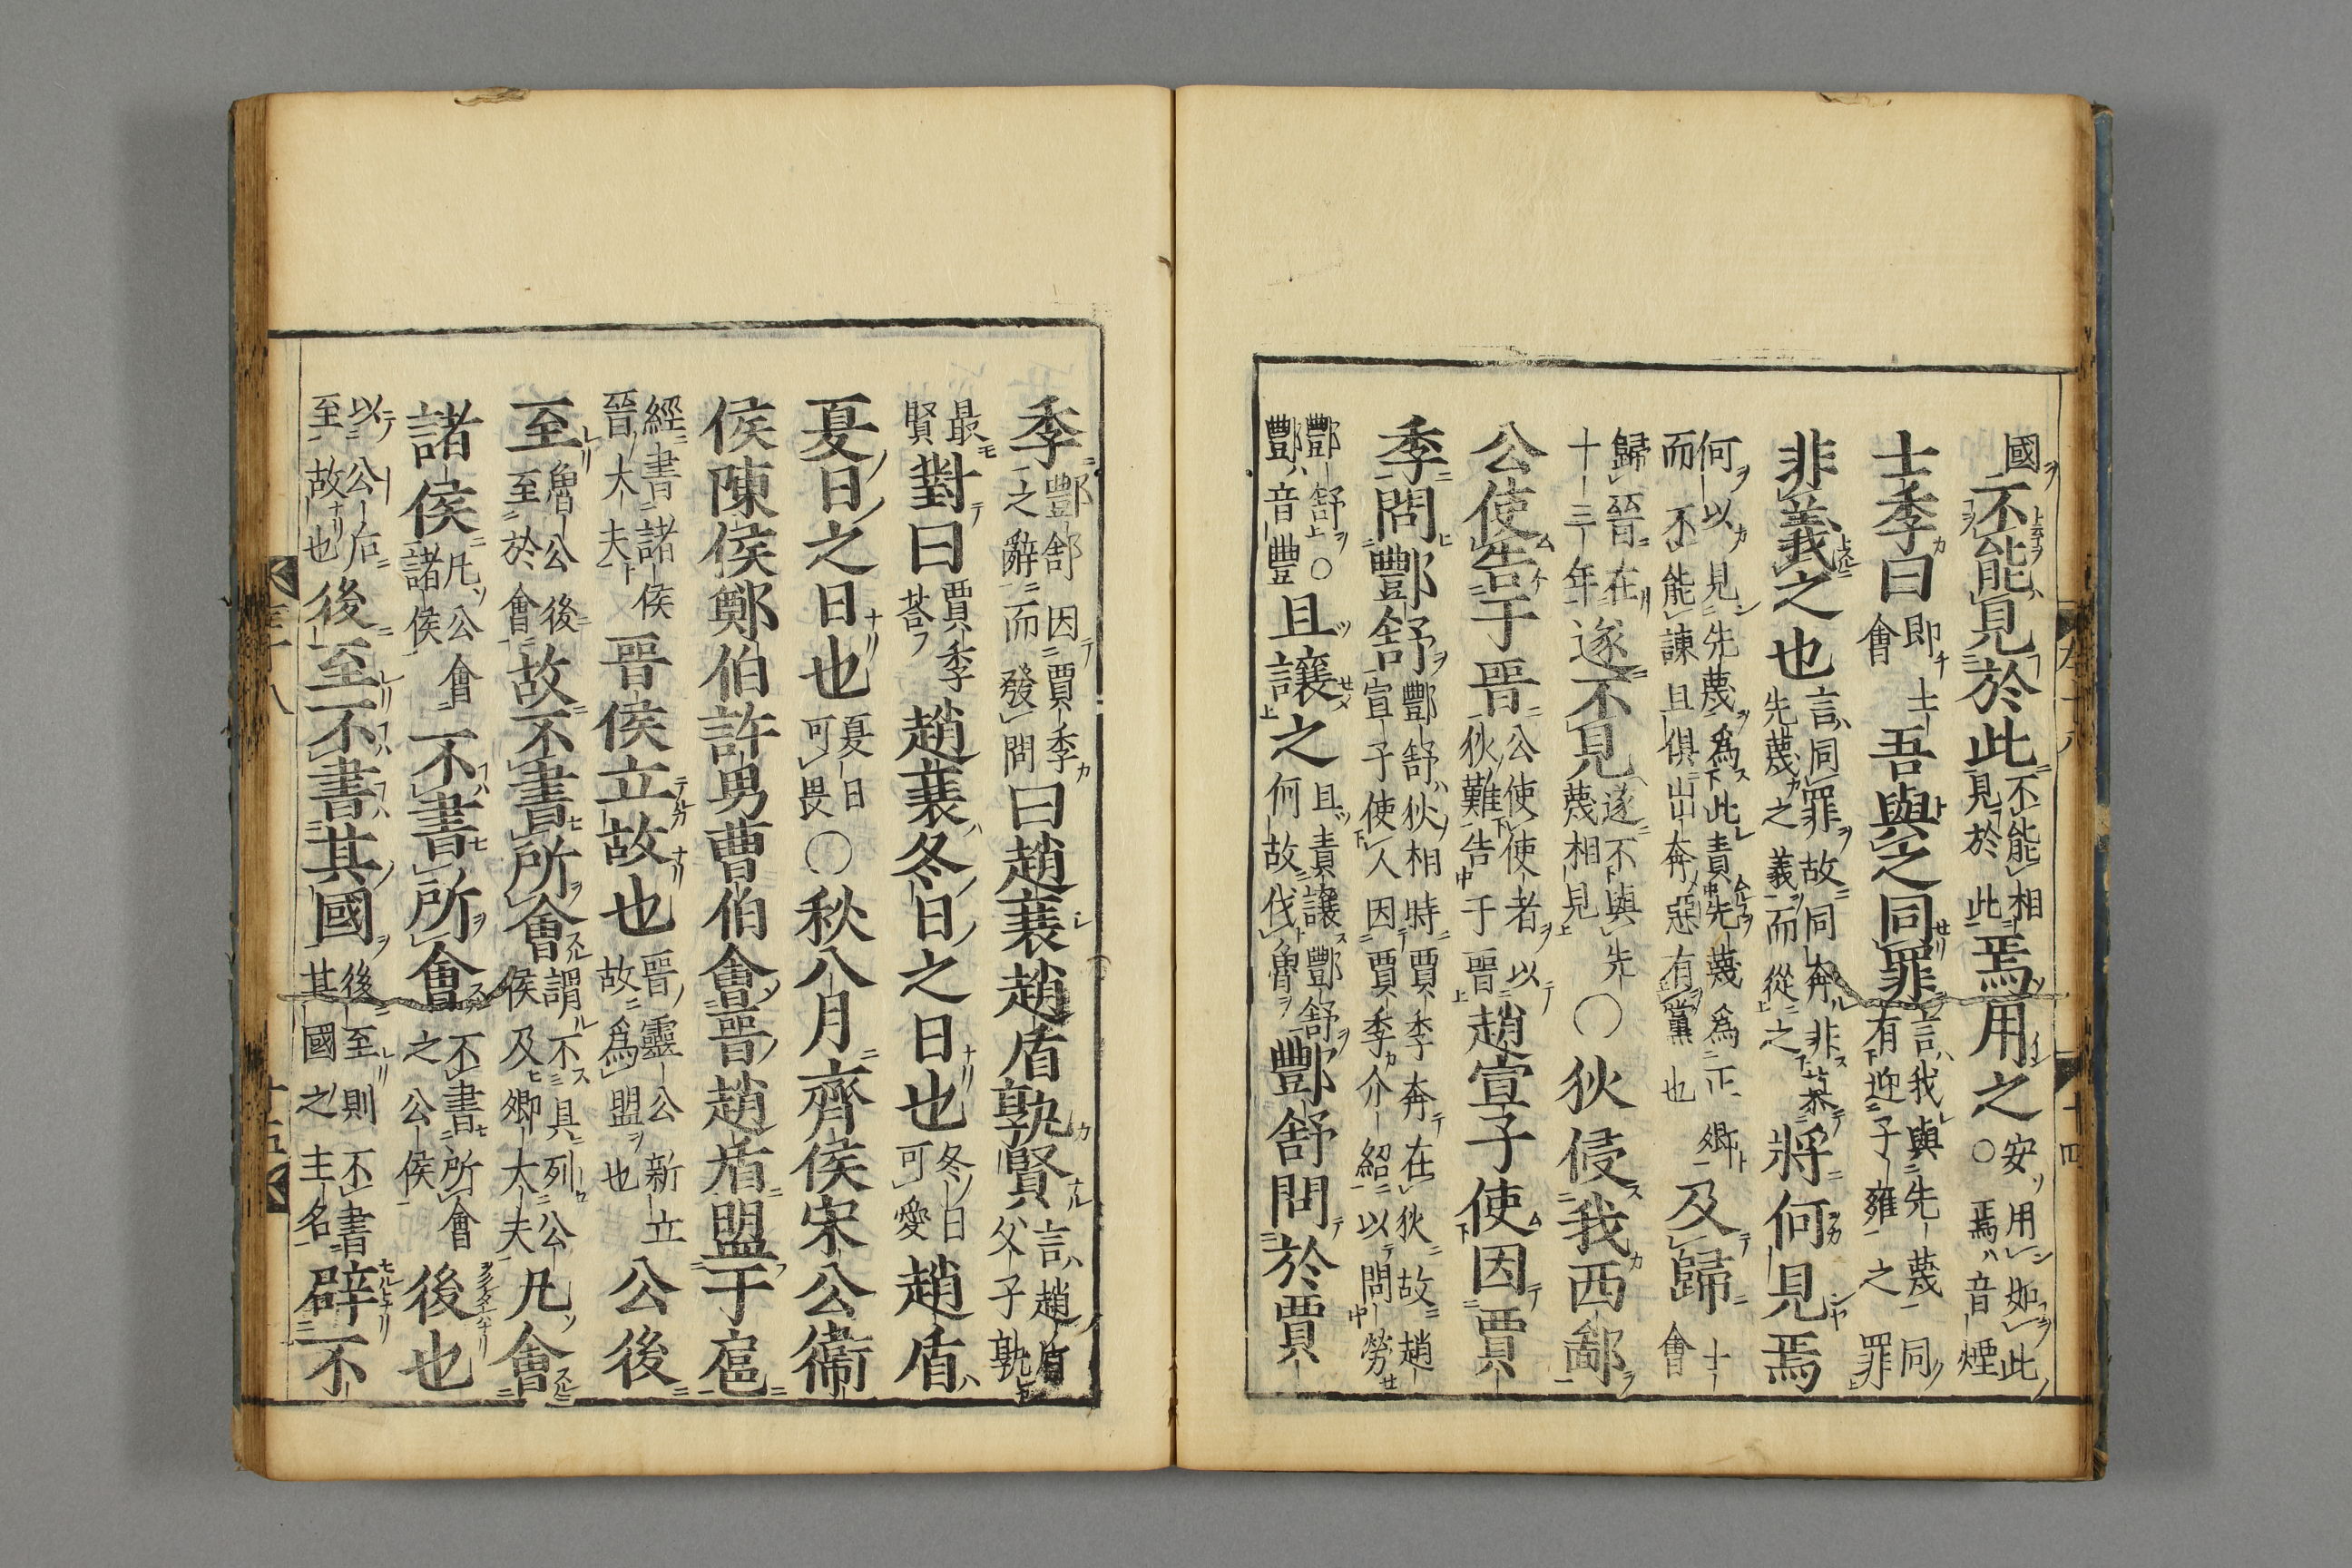 國不能見於此不能相見於此焉用之安用如此○焉音煙
士季曰即士會吾與之同罪言我與先蔑同有迎子雍之罪
非義之也言同罪故同奔非慕先蔑之義而從之將何見焉
何以見先蔑爲此責先蔑爲正卿而不能諫且俱出奔惡有黨也及歸士會
歸晉在十三年遂不見遂不與先蔑相見○狄侵我西鄙
公使告于晉公使使者以狄難告于晉趙宣子使因賈
季問酆舒酆舒狄相時賈季奔在狄故趙宣子使人因賈季介紹以問勞
酆舒○酆音豐且讓之且責讓酆舒何故伐魯酆舒問於賈
季酆舒因賈季之辭而發問曰趙衰趙盾孰賢言趙盾父子孰
最賢對曰賈季荅趙衰冬日之日也冬日可愛趙盾
夏日之日也夏日可畏○秋八月齊侯宋公衞
侯陳侯鄭伯許男曹伯會晉趙盾盟于扈
經書諸侯晉大夫晉侯立故也晉靈公新立故爲盟也公後
至魯公後至於會故不書所會謂不具列公侯及卿大夫凡會
諸侯凡公會諸侯不書所會不書所會之公侯後也
以公后至故也後至不書其國後至則不書其國之主名辟不
左十八
十四
十八
十五